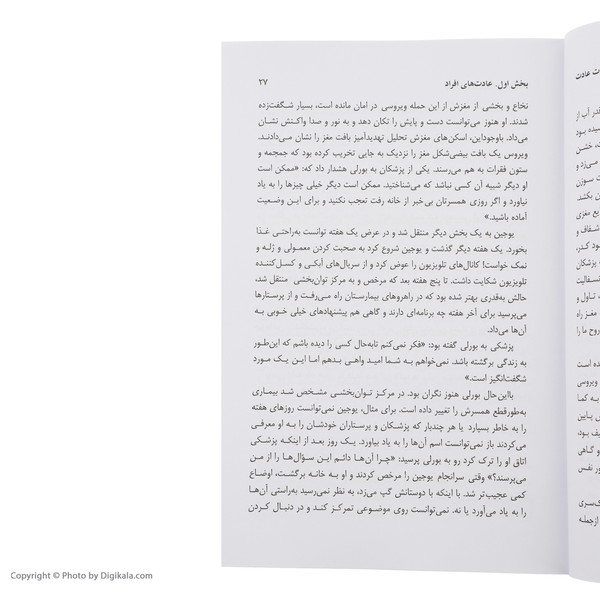 بخش اول. عادت‌های افراد ۲۷
نخاع و بخشی از مغزش از این حمله ویروسی در امان مانده است، بسیار شگفت‌زده
شدند. او هنوز می‌توانست دست و پایش را تکان دهد و به نور و صدا واکنش نشان
می‌داد. باوجوداین، اسکن‌های مغزش تحلیل تهدیدآمیز بافت مغز را نشان می‌دادند.
ویروس یک بافت بیضی‌شکل مغز را نزدیک به جایی تخریب کرده بود که جمجمه و
ستون فقرات به هم می‌رسند. یکی از پزشکان به بورلی هشدار داد که: «ممکن است
او دیگر شبیه آن کسی نباشد که می‌شناختید. ممکن است دیگر خیلی چیزها را به یاد
نیاورد و اگر روزی همسرتان بی‌خبر از خانه رفت تعجب نکنید و برای این وضعیت
آماده باشید.»
یوجین به یک بخش دیگر منتقل شد و در عرض یک هفته توانست به‌راحتی غذا
بخورد. یک هفته دیگر گذشت و یوجین شروع کرد به صحبت کردن معمولی و ژله و
نمک خواست! کانال‌های تلویزیون را عوض کرد و از سریال‌های آبکی و کسل‌کننده
تلویزیون شکایت داشت. تا پنج هفته بعد که مرخص و به مرکز توان‌بخشی منتقل شد،
حالش به‌قدری بهتر شده بود که در راهروهای بیمارستان راه می‌رفت و از پرستارها
می‌پرسید برای آخر هفته چه برنامه‌ای دارند و گاهی هم پیشنهادهای خیلی خوبی به
آن‌ها می‌داد.
پزشکی به بورلی گفته بود: «فکر نمی‌کنم تابه‌حال کسی را دیده باشم که این‌طور
به زندگی برگشته باشد. نمی‌خواهم به شما امید واهی بدهم اما این یک مورد
شگفت‌انگیز است.»
بااین‌حال بورلی هنوز نگران بود. در مرکز توان‌بخشی مشخص شد بیماری
به‌طورقطع همسرش را تغییر داده است. برای مثال، یوجین نمی‌توانست روزهای هفته
را به خاطر بسپارد یا هر چندبار که پزشکان و پرستاران خودشان را به او معرفی
می‌کردند باز نمی‌توانست اسم آن‌ها را به یاد بیاورد. یک روز بعد از اینکه پزشکی
اتاق او را ترک کرد رو به بورلی پرسید: «چرا آن‌ها دائم این سؤال‌ها را از من
می‌پرسند؟» وقتی سرانجام یوجین را مرخص کردند و او به خانه برگشت، اوضاع
کمی عجیب‌تر شد. با اینکه با دوستانش گپ می‌زد، به نظر نمی‌رسید به‌راستی آن‌ها
را به یاد می‌آورد یا نه. نمی‌توانست روی موضوعی تمرکز کند و در دنبال کردن
Copyright © Photo by Digikala.com